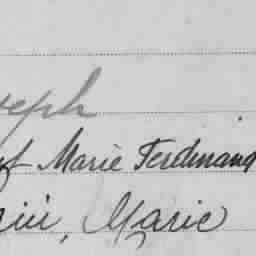 eph
Marie Ferdinand
Marie